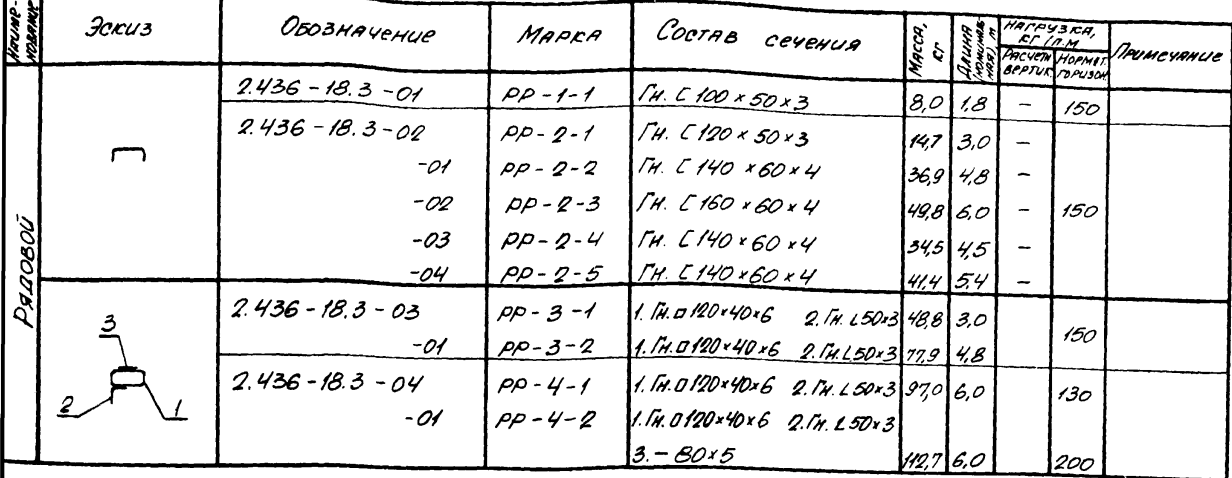 Наиме-нование Эскиз Обозначение Марка Состав сечения Масса, кг Длина (номинальная), м Нагрузка, кг/п.м Примечание
Расчетн вертик Нормат. горизон
Рядовой
2.436-18.3-01 РР-1-1 Гн. [ 100×50×3 8,0 1,8 – 150
2.436-18.3-02 РР-2-1 Гн. [ 120×50×3 14,7 3,0 –
-01 РР-2-2 Гн. [ 140×60×4 36,9 4,8 –
-02 РР-2-3 Гн. [ 160×60×4 49,8 6,0 – 150
-03 РР-2-4 Гн. [ 140×60×4 34,5 4,5 –
-04 РР-2-5 Гн. [ 140×60×4 41,4 5.4 –
2.436-18.3-03 РР-3-1 1. Гн.□120×40×6 2. Гн. L50×3 48,8 3,0 150
-01 РР-3-2 1. Гн.□120×40×6 2. Гн. L50×3 77,9 4,8
2.436-18.3-04 РР-4-1 1. Гн.□120×40×6 2. Гн. L50×3 97,0 6,0 130
-01 РР-4-2 1. Гн.□120×40×6 2. Гн. L50×3
3. – 80×5 112,7 6.0 200
3
2 1